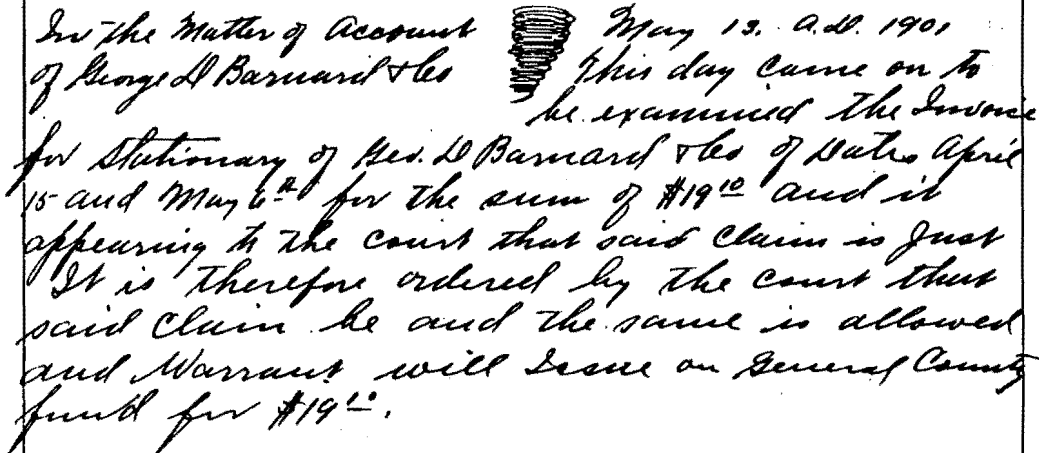 In the Matter of Account May 13. A.D. 1901
of George D Barnard & Co This day came on to
be examined the Invoice
for Stationary of Geo. D Barnard & Co of Dates April
15 and May 6th for the sum of $19 10 and it
appearing to the court that said claim is Just
It is therefore ordered by the court that
said claim be and the same is allowed
and Warrant will Issue on General County
fund for $19 10.